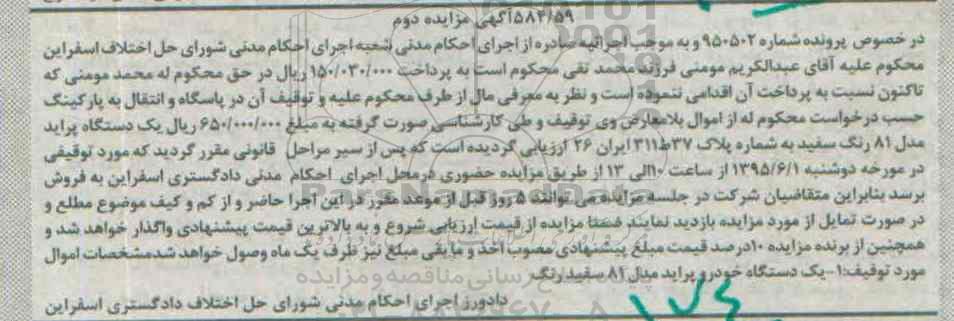 ۵۸۴/۵۹آگهی مزایده دوم
در خصوص پرونده شماره ۹۵۰۵۰۲ و به موجب اجرائیه صادره از اجرای احکام مدنی شعبه اجرای احکام مدنی شورای حل اختلاف اسفراین
محکوم علیه آقای عبدالکریم مومنی فرزند محمد تقی محکوم است به پرداخت ۱۵۰/۰۳۰/۰۰۰ ریال در حق محکوم له محمد مومنی که
تاکنون نسبت به پرداخت آن اقدامی ننموده است و نظر به معرفی مال از طرف محکوم علیه و توقیف آن در پاسگاه و انتقال به پارکینگ
حسب درخواست محکوم له از اموال بلامعارض وی توقیف و طی کارشناسی صورت گرفته به مبلغ ۶۵۰/۰۰۰/۰۰۰ ریال یک دستگاه پراید
مدل ۸۱ رنگ سفید به شماره پلاک ۳۷ط۳۱۱ ایران ۲۶ ارزیابی گردیده است که پس از سیر مراحل قانونی مقرر گردید که مورد توقیفی
در مورخه دوشنبه ۱۳۹۵/۶/۱ از ساعت ۱۰الی ۱۳ از طریق مزایده حضوری درمحل اجرای احکام مدنی دادگستری اسفراین به فروش
برسد بنابراین متقاضیان شرکت در جلسه مزایده می توانند ۵ روز قبل از موعد مقرر در این اجرا حاضر و از کم و کیف موضوع مطلع و
در صورت تمایل از مورد مزایده بازدید نمایند ضمنا مزایده از قیمت ارزیابی شروع و به بالاترین قیمت پیشنهادی واگذار خواهد شد و
همچنین از برنده مزایده ۱۰درصد قیمت مبلغ پیشنهادی مصوب اخذ و مابقی مبلغ نیز ظرف یک ماه وصول خواهد شدمشخصات اموال
مورد توقیف:۱-یک دستگاه خودرو پراید مدل ۸۱ سفید رنگ
دادورز اجرای احکام مدنی شورای حل اختلاف دادگستری اسفراین
ParsNamadData